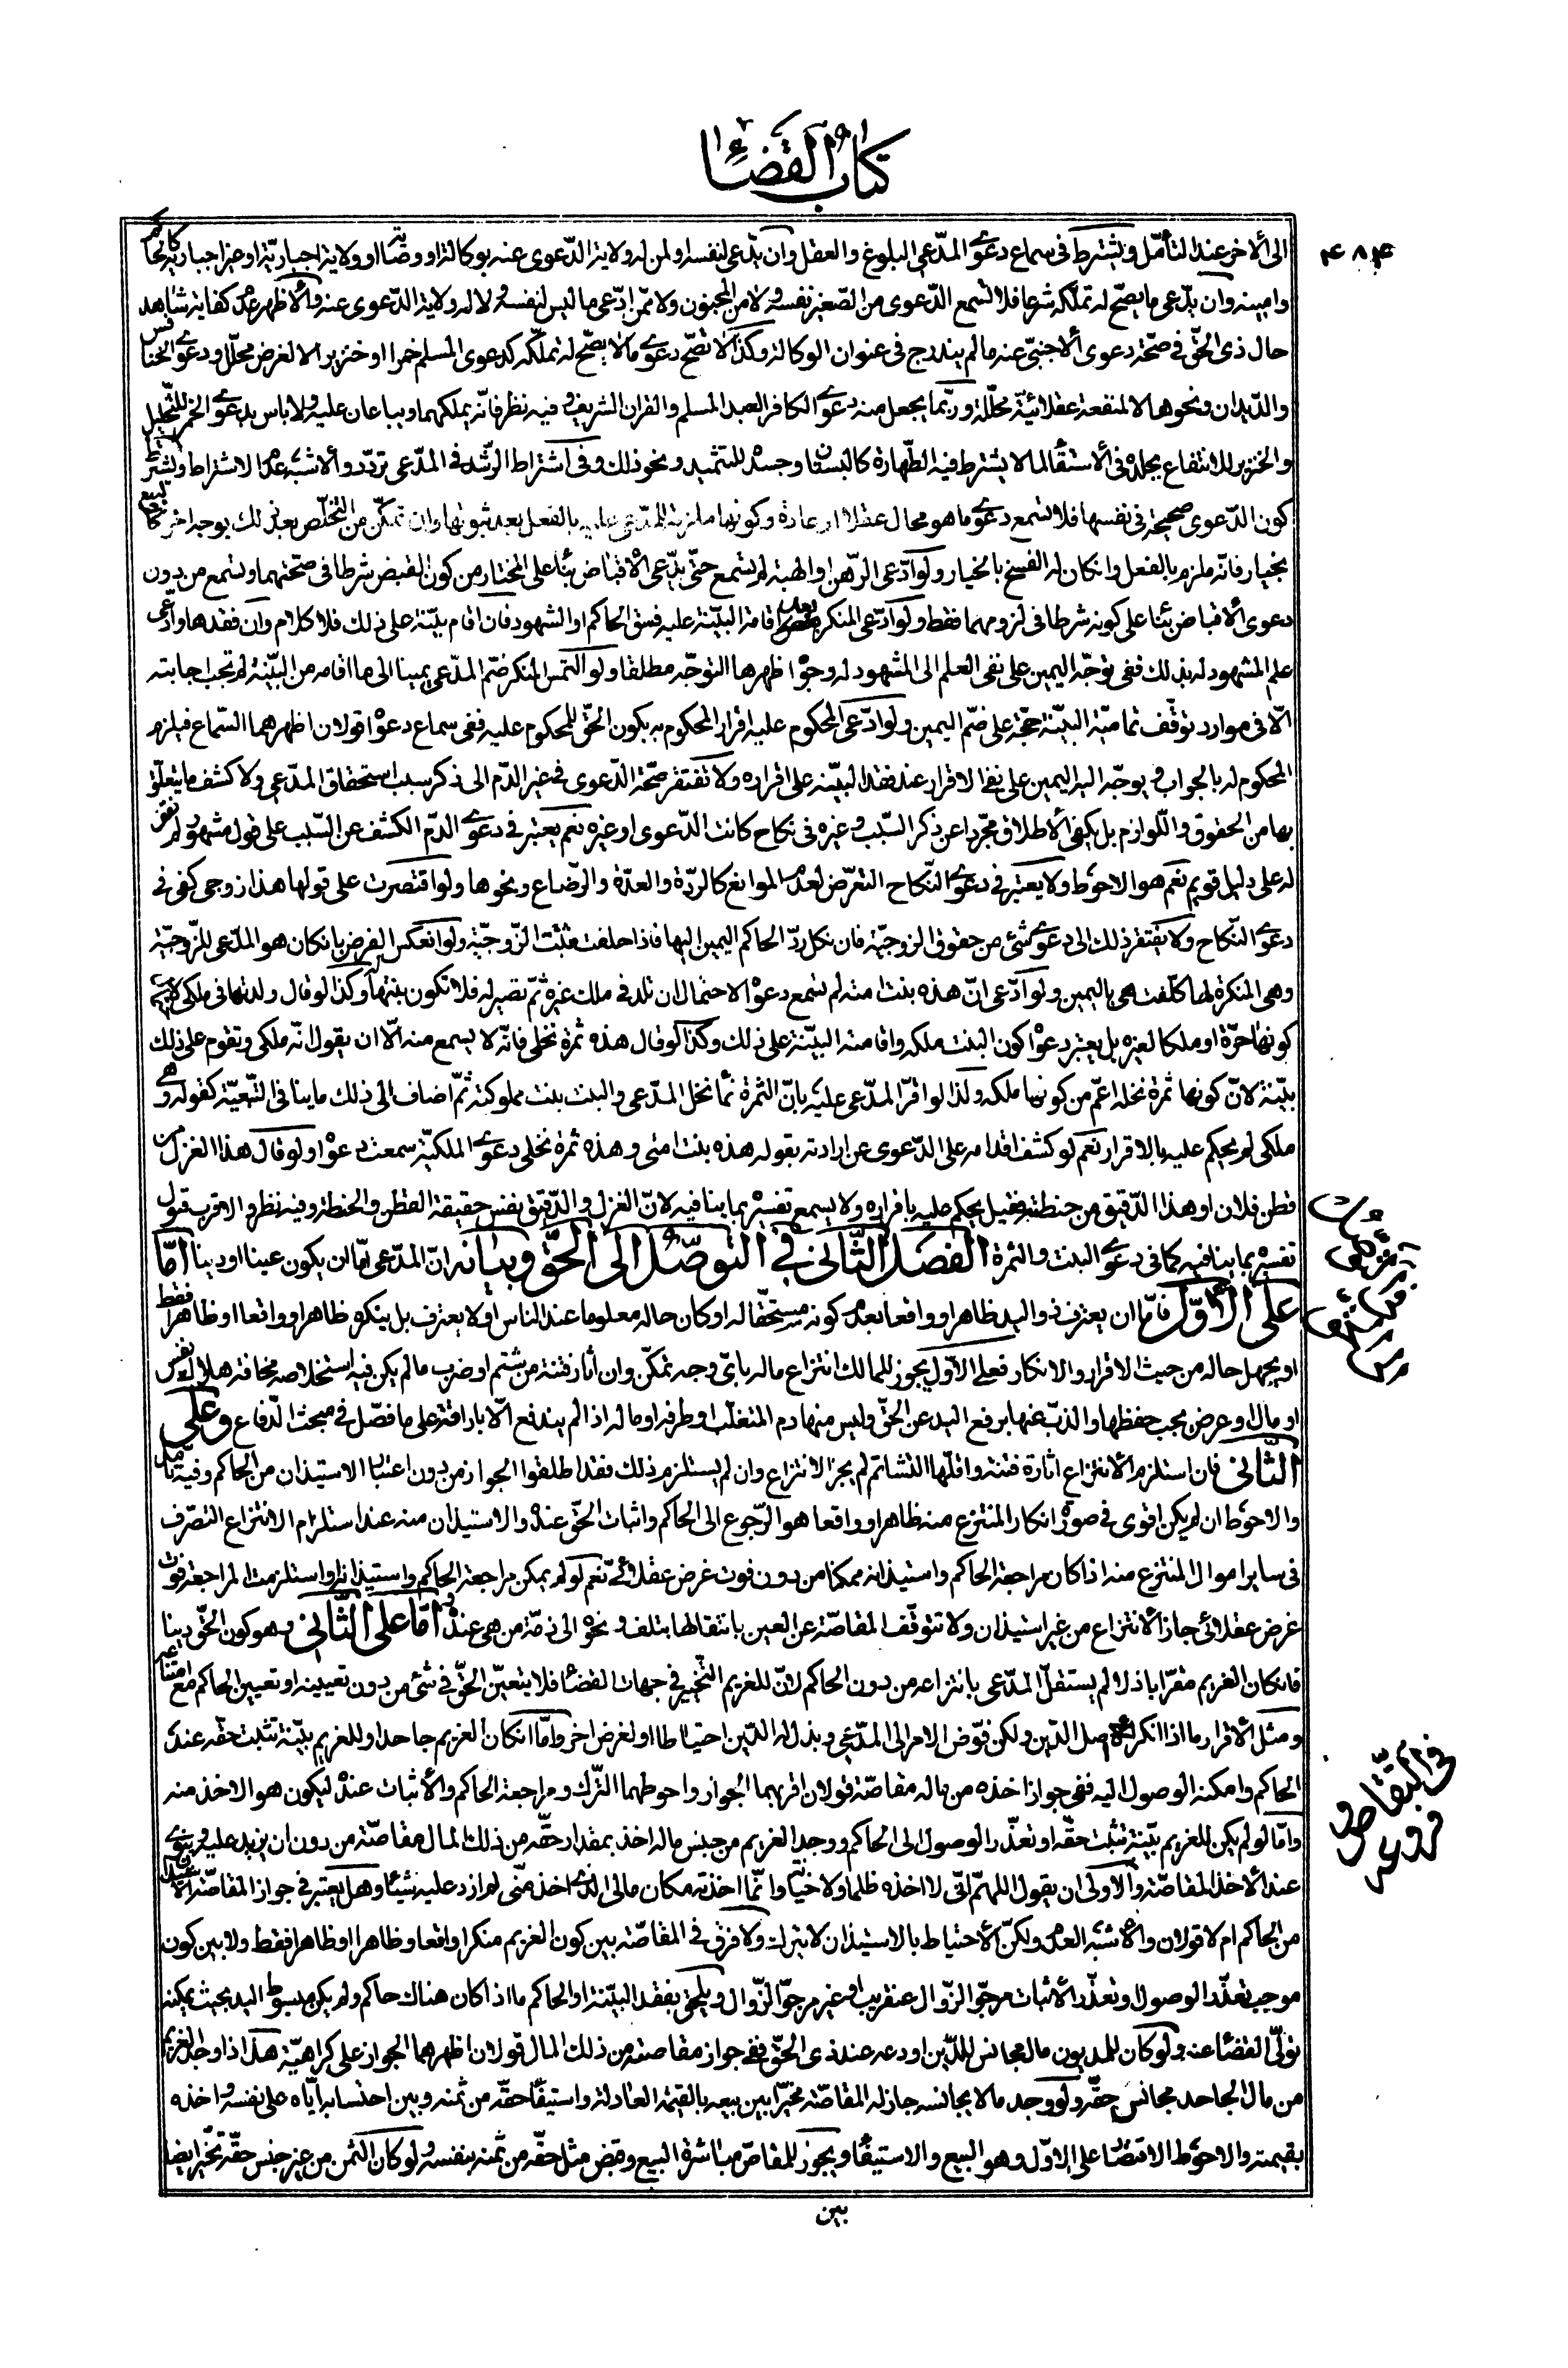 كتاب القضاء
٤٨٤
الى الاخر عند التأمّل ويشترط في سماع دعوى المدّعي البلوغ والعقل وان يدّعي لنفسه او لمن له ولاية الدّعوى عنه بوكالة او وصاية او ولاية اجباريّة او غير اجباريّة كالحاكم
وامينه وان يدّعي ما يصحّ له تملّكه شرعا فلا تسمع الدّعوى من الصّغير نفسه ولا من المجنون ولا ممّن ادّعى ما ليس لنفسه ولا له ولاية الدّعوى عنه والاظهر عدم كفاية شاهد
حال ذي الحقّ في صحّة دعوى الاجنبيّ عنه ما لم يندرج في عنوان الوكالة وكذا لا تصحّ دعوى ما لا يصحّ له تملّكه كدعوى المسلم خمرا او خنزيرا لا لغرض محلّل ودعوى الخنافس
والدّيدان ونحوها لا لمنفعة عقلائيّة محلّلة وربّما يجعل منه دعوى الكافر العبد المسلم والقران الشريف وفيه نظر فانّه يملكهما ويباعان عليه ولا باس بدعوى الخمر للتّخليل
والخنزير للانتفاع بجلده في الاستقاء لما لا يشترط فيه الطّهارة كالبستان وجسده للتثميد ونحو ذلك وفي اشتراط الرّشد في المدّعي تردّد والاشبه عدم الاشتراط ويشترط
كون الدّعوى صحيحة في نفسها فلا تسمع دعوى ما هو محال عقلا او عادة وكونها ملزمة للمدّعى عليه بالفعل بعد ثبوتها وان تمكّن من التخلّص بعد ذلك بوجه اخر كالبيع
بخيار فانّه ملزم بالفعل وانكان له الفسخ بالخيار ولو ادّعى الرّهن او الهبة لم تسمع حتّى يدّعي الاقباض بناء على المختار من كون القبض شرطا في صحّتهما وتسمع من دون
دعوى الاقباض بناء على كونه شرطا في لزومهما فقط ولو ادّعى المنكر بعد اقامة البيّنة عليه فسق الحاكم او الشهود فان اقام بيّنة على ذلك فلا كلام وان فقدها وادّعى
علم المشهود له بذلك ففي توجّه اليمين على نفي العلم الى المشهود له وجوه اظهرها التوجّه مطلقا ولو التمس المنكر ضمّ المدّعي يمينا الى ما اقامه من البيّنة لم تجب اجابته
الّا في موارد توقّف تماميّة البيّنة حجّة على ضمّ اليمين ولو ادّعى المحكوم عليه اقرار المحكوم له بكون الحقّ للمحكوم عليه ففي سماع دعواه قولان اظهرهما السّماع فيلزم
المحكوم له بالجواب ويوجّه اليه اليمين على نفي الاقرار عند فقد البيّنة على اقراره ولا تفتقر صحّة الدّعوى في غير الدّم الى ذكر سبب استحقاق المدّعي ولا كشف ما يتعلّق
بها من الحقوق واللّوازم بل يكفي الاطلاق مجرّدا عن ذكر السّبب وغيره في نكاح كانت الدّعوى او غيره نعم يعتبر في دعوى الدّم الكشف عن السّبب على قول مشهور لم نقف
له على دليل قويم نعم هو الاحوط ولا يعتبر في دعوى النّكاح التعرّض لعدم الموانع كالرّدّة والعدّة والرّضاع ونحوها ولو اقتصرت على قولها هذا زوجي كفى في
دعوى النّكاح ولا يفتقر ذلك الى دعوى شئ من حقوق الزوجيّة فان نكل ردّ الحاكم اليمين اليها فاذا حلفت ثبتت الزّوجيّة ولو انعكس الفرض بانكان هو المدّعي للزّوجيّة
وهي المنكرة لها كلّفت هي باليمين ولو ادّعى انّ هذه بنت امته لم تسمع دعواه لاحتمال ان تلد في ملك غيره ثمّ تصير له فلا تكون بنتها له وكذا لو قال ولدتها في ملكي لاحتمال
كونها حرّة او ملكا لغيره بل يعتبر دعواه كون البنت ملكه واقامته البيّنة على ذلك وكذا لو قال هذه ثمرة نخلي فانّه لا يسمع منه الّا ان يقول انّه ملكي وتقوم على ذلك
بيّنة لانّ كونها ثمرة نخله اعمّ من كونها ملكه ولذا لو اقرّ المدّعى عليه بانّ الثمرة نماء نخل المدّعي والبنت بنت مملوكته ثمّ اضاف الى ذلك ما ينافي التّبعيّة كقوله وهي
ملكي لم يحكم عليه بالاقرار نعم لو كشف اقدامه على الدّعوى عن ارادته بقوله هذه بنت امتي وهذه ثمرة نخلي دعوى الملكيّة سمعت دعواه ولو قال هذا الغزل من
قطن فلان او هذا الدّقيق من حنطته فقيل يحكم عليه باقراره ولا يسمع تفسيره بما ينافيه لانّ الغزل والدّقيق نفس حقيقة القطن والحنطة وفيه نظر والاقرب قبول
تفسيره بما ينافيه كما في دعوى البنت والثمرة الفصل الثّاني في التوصّل الى الحقّ وبيانه انّ المدّعى امّا ان يكون عينا او دينا امّا
على الاوّل فامّا ان يعترف ذو اليد ظاهرا وواقعا بعدم كونه مستحقّا له او كان حاله معلوما عند الناس او لا يعترف بل ينكر ظاهرا وواقعا او ظاهرا فقط
او يجهل حاله من حيث الاقرار والانكار فعلى الاوّل يجوز للمالك انتزاع ماله باىّ وجه تمكّن وان أثار فتنة من شتم او ضرب ما لم يكن في استخلاصه مخافة هلاك نفس
او مال او عرض يجب حفظها والذبّ عنها برفع اليد عن الحقّ وليس منها دم المتغلّب او طرفه او ماله اذا لم يندفع الّا باراقته على ما فصّل في مبحث الدّفاع وعلى
الثّاني فان استلزم الانتزاع اثارة فتنة واقلّها التشاتم لم يجز الانتزاع وان لم يستلزم ذلك فقد اطلقوا الجواز من دون اعتبار الاستيذان من الحاكم وفيه تامّل
والاحوط ان لم يكن اقوى في صورة انكار المنتزع منه ظاهرا وواقعا هو الرّجوع الى الحاكم واثبات الحقّ عنده والاستيذان منه عند استلزام الانتزاع التصرّف
في ساير اموال المنتزع منه اذا كان مراجعة الحاكم واستيذانه ممكنا من دون فوت غرض عقلائيّ نعم لو لم يمكن مراجعة الحاكم واستيذانه او استلزمت المراجعة فوت
غرض عقلائي جاز الانتزاع من غير استيذان ولا تتوقّف المقاصّة عن العين بانتقالها بتلف ونحوه الى ذمّة من هي عنده وامّا على الثّاني وهو كون الحقّ دينا
فانكان الغريم مقرّا باذلا لم يستقلّ المدّعي بانتزاعه من دون الحاكم لانّ للغريم التّخيير في جهات القضاء فلا يتعيّن الحقّ في شئ من دون تعيينه او تعيين الحاكم مع امتناعه
ومثل الاقرار ما اذا انكر اصل الدّين ولكن فوّض الامر الى المدّعي وبذل له الدّين احتياطا او لغرض اخر وامّا انكان الغريم جاحدا وللغريم بيّنة تثبت حقّه عند
الحاكم وامكنه الوصول اليه ففي جواز اخذه من ماله مقاصّة قولان اقربهما الجواز واحوطهما التّرك ومراجعة الحاكم والاثبات عنده ليكون هو الاخذ منه
وامّا لو لم يكن للغريم بيّنة تثبت حقّه او تعذّر الوصول الى الحاكم ووجد الغريم من جنس ماله اخذ بمقدار حقّه من ذلك المال مقاصّة من دون ان يزيد عليه وينوي
عند الاخذ المقاصّة والاولى ان يقول اللهمّ انّي لا اخذه ظلما ولا خيانة وانّما اخذته مكان مالي الّذي اخذ منّي لم ازدد عليه شيئا وهل يعتبر في جواز المقاصّة الاستيذان
من الحاكم ام لا قولان والاشبه العدم ولكنّ الاحتياط بالاستيذان لا يترك ولا فرق في المقاصّة بين كون الغريم منكرا واقعا وظاهرا او ظاهرا فقط ولا بين كون
موجب تعذّر الوصول وتعذّر الاثبات مرجوّ الزّوال عنقريب او غير مرجوّ الزّوال ويلحق بفقد البيّنة او الحاكم ما اذا كان هناك حاكم ولم يكن مبسوط اليد بحيث يمكنه
تولّي القضاء عنه ولو كان للمديون مال مجانس للدّين اودعه عند ذي الحقّ ففي جواز مقاصّته من ذلك المال قولان اظهرهما الجواز على كراهيّة هذا اذا وجد الغريم
من مال الجاحد مجانس حقّه ولو وجد ما لا يجانسه جاز له المقاصّة مخيّرا بين بيعه بالقيمة العادلة واستيفاء حقّه من ثمنه وبين احتسابه ايّاه على نفسه واخذه
بقيمته والاحوط الاقتصار على الاوّل وهو البيع والاستيفاء ويجوز للمقاصّ مباشرة البيع وقبض مثل حقّه من ثمنه بنفسه ولو كان الثمن من غير جنس حقّه تخيّر ايضا
في التقاصّ و
فروعه
بين